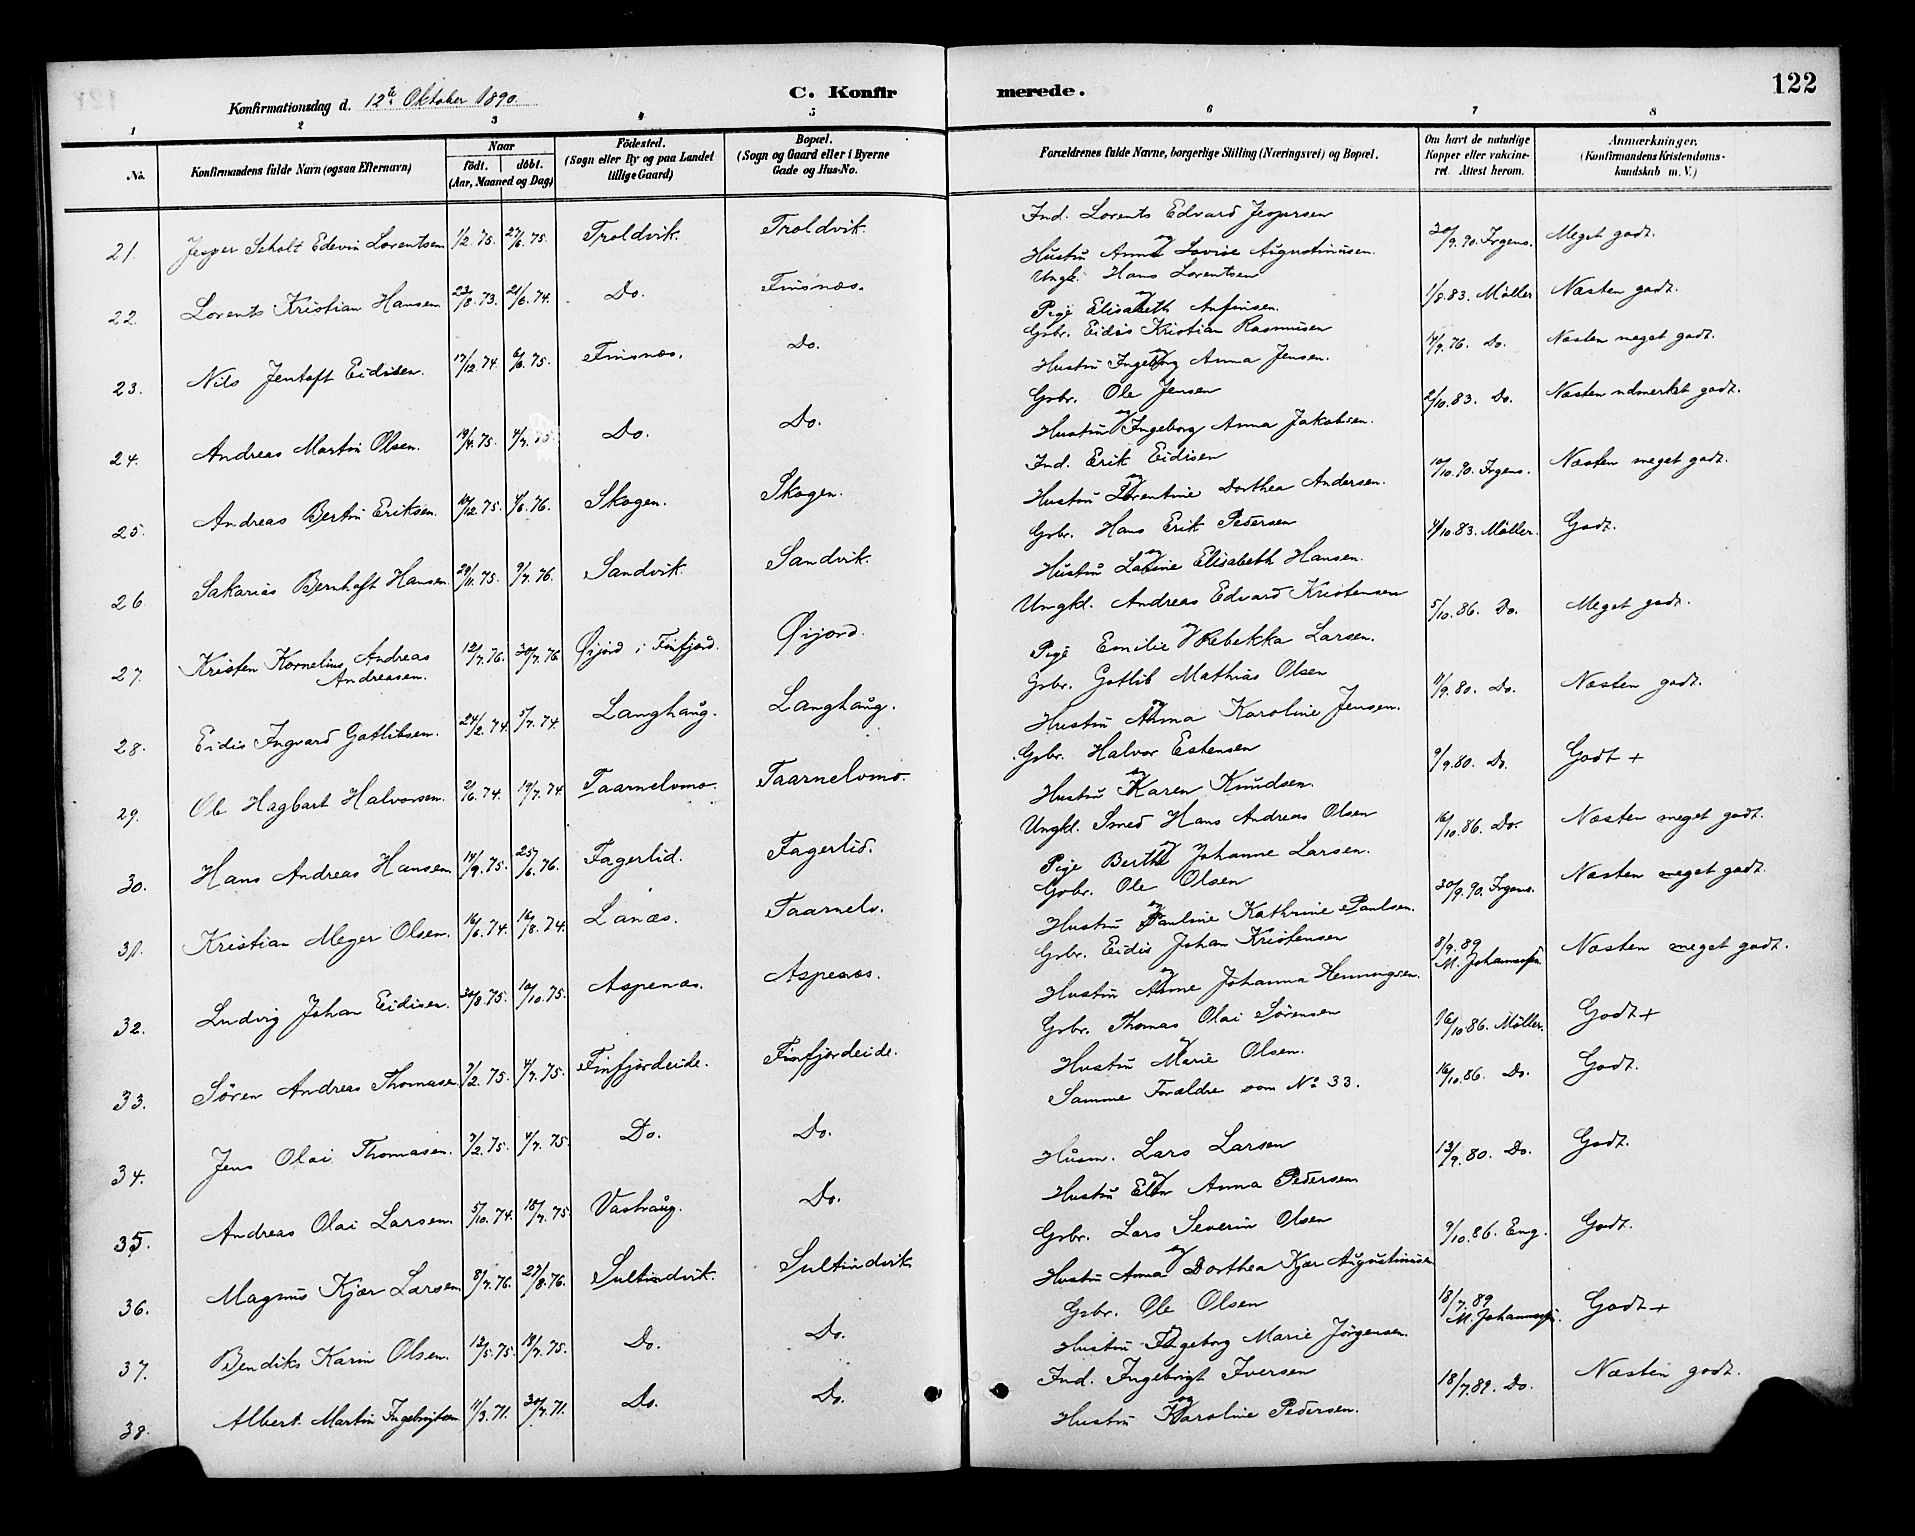 122
Konfirmationsdag d. 12te Oktober 1890.
C. Konfirmerede.
1 2 3 4 5 6 7 8
No.
Konfirmandens fulde Navn (ogsaa Efternavn)
Naar födt. döbt. (Aar, Maaned og Dag)
Födested. (Sogn eller By og paa Landet tillige Gaard)
Bopæl. (Sogn og Gaard eller i Byerne Gade og Hus-No.
Forældrenes fulde Navne, borgerlige Stilling (Næringsvei) og Bopæl.
Om havt de naturlige Kopper eller vakcineret. Attest herom.
Anmærkninger. (Konfirmandens Kristendomskundskab m. V.)
21. Jesper Scholt Edevin Lorentsen 1/2.75. 27/6.75. Troldvik. Troldvik. Ind. Lorents Edvard Jespersen og Hustru Anna Lovise Augustinusen. 30/9.90. Irgens. Meget godt.
22. Lorents Kristian Hansen 23/8.73. 21/6.74. Do. Finsnæs. Ungk. Hans Lorentsen og Pige Elisabeth Anfinsen. 1/8.83. Möller Næsten godt.
23. Nils Jentoft Eidisen. 17/12.74. 6/6.75. Finsnæs. Do. Gbr. Eidis Kristian Rasmusen og Hustru Ingeborg Anna Jensen. 4/9.76. Do. Næsten meget godt.
24. Andreas Martin Olsen. 19/4.75. 4/7.75. Do. Do. Gbr. Ole Jensen og Hustru Ingeborg Anna Jakobsen. 2/10.83. Do. Næsten udmerket godt.
25. Andreas Bertin Eriksen. 10/12.75. 4/6.76. Skogen. Skogen. Ind. Erik Eidisen og Hustru Lorentine Dorthea Andersen. 10/10.90. Irgens. Næsten meget godt.
26 Sakarias Bernhoft Hansen. 29/11.75. 9/7.76. Sandvik. Sandvik. Gbr. Hans Erik Pedersen og Hustru Lavine Elisabeth Hansen. 4/10.83. Möller. Godt.
27. Kristen Kornelius Andreas Andreasen. 12/7.76. 30/7.76. Øijord i Finfjord. Øijord. Ungkl. Andreas Edvard Kristensen og Pige Emilie Rebekka Larsen. 5/10.86. Do. Meget godt.
28. Eidis Ingvard Gotlibsen. 24/2.74. 5/7.74. Langhaug. Langhaug. Gbr. Gotlib Mathias Olsen og Hustru Anna Karoline Jensen. 9/9.80. Do. Næsten godt.
29. Ole Hagbart Halvorsen. 2/6.74. 19/7.74 Taarnelvmo. Taarnelvmo. Gbr. Halvor Estensen og Hustru Karen Knudsen. 9/9.80. Do. Godt +
30. Hans Andreas Hansen 14/9.75. 25/6.76. Fagerlid. Fagerlid. Ungkl. Smed Hans Andreas Olsen og Pige Berthe Johanne Larsen. 16/10.86. Do. Næsten meget godt.
31. Kristian Meyer Olsen. 16/6.74. 16/8.74. Lanæs. Taarnelv. Gbr. Ole Olsen og Hustru Pauline Kathrine Paulsen. 30/9.90. Irgens. Næsten meget godt.
32. Ludvig Johan Eidisen. 30/8.75. 10/10.75. Aspenæs. Aspenæs. Gbr. Eidis Johan Kristensen og Hustru Anne Johanna Henningsen. 8/9.89 M. Johannesen. Næsten meget godt.
33. Sören Andreas Thomasen 7/2.75. 4/7.75. Finfjordeide. Finfjordeide. Gbr. Thomas Olai Sörensen og Hustru Marie Olsen. 16/10.86. Möller. Godt +
34. Jens Olai Thomasen. 7/2.75. 4/7.75. Do. Do. Samme Forældre som No 33. 16/10.86. Do. Godt.
35. Andreas Olai Larsen. 5/10.74. 18/7.75. Vastraug. Do. Husm. Lars Larsen og Hustru Elen Anna Pedersen 13/9.80. Do. Godt.
36. Magnus Kjær Larsen 8/7.76. 27/8.76. Sultindvik. Sultindvik Gbr. Lars Severin Olsen og Hustru Anna Dorthea Kjær Augustinusen 9/10.86. Eng. Godt.
37. Bendiks Karin Olsen. 12/5.75. 18/7.75. Do. Do. Gbr. Ole Olsen og Hustru Ingeborg Marie Jörgensen. 18/7.89 M. Johannesen. Godt +
38. Albert Martin Ingebrigtsen 11/3.71. 30/7.71. Do. Do. Ind. Ingebrigt Iversen og Hustru Karoline Pedersen. 18/7.89. Do. Næsten godt.